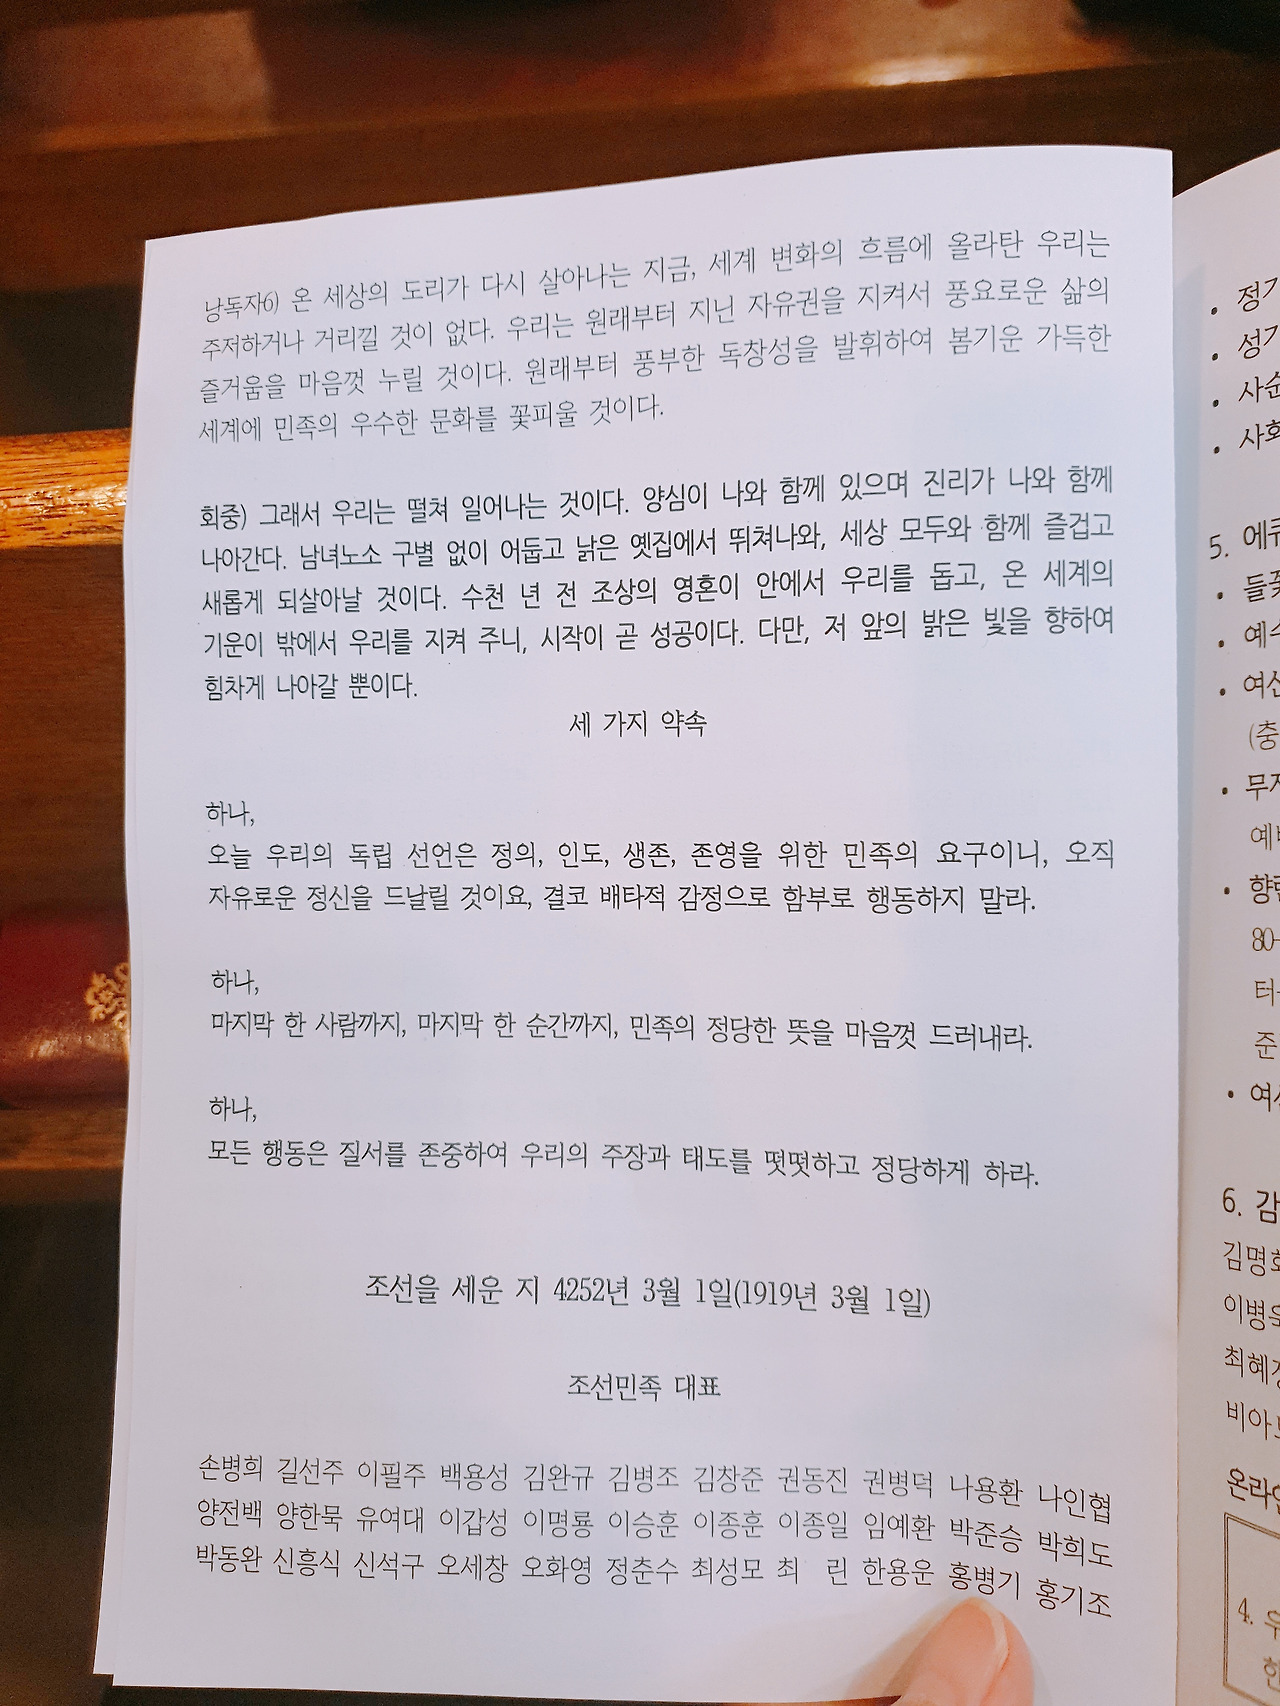 낭독자6) 온 세상의 도리가 다시 살아나는 지금, 세계 변화의 흐름에 올라탄 우리는
주저하거나 거리낄 것이 없다. 우리는 원래부터 지닌 자유권을 지켜서 풍요로운 삶의
즐거움을 마음껏 누릴 것이다. 원래부터 풍부한 독창성을 발휘하여 봄기운 가득한
세계에 민족의 우수한 문화를 꽃피울 것이다.
회중) 그래서 우리는 떨쳐 일어나는 것이다. 양심이 나와 함께 있으며 진리가 나와 함께
나아간다. 남녀노소 구별 없이 어둡고 낡은 옛집에서 뛰쳐나와, 세상 모두와 함께 즐겁고
새롭게 되살아날 것이다. 수천 년 전 조상의 영혼이 안에서 우리를 돕고, 온 세계의
기운이 밖에서 우리를 지켜 주니, 시작이 곧 성공이다. 다만, 저 앞의 밝은 빛을 향하여
힘차게 나아갈 뿐이다.
세 가지 약속
하나,
오늘 우리의 독립 선언은 정의, 인도, 생존, 존영을 위한 민족의 요구이니, 오직
자유로운 정신을 드날릴 것이요, 결코 배타적 감정으로 함부로 행동하지 말라.
하나,
마지막 한 사람까지, 마지막 한 순간까지, 민족의 정당한 뜻을 마음껏 드러내라.
하나,
모든 행동은 질서를 존중하여 우리의 주장과 태도를 떳떳하고 정당하게 하라.
조선을 세운 지 4252년 3월 1일(1919년 3월 1일)
조선민족 대표
손병희 길선주 이필주 백용성 김완규 김병조 김창준 권동진 권병덕 나용환 나인협
양전백 양한묵 유여대 이갑성 이명룡 이승훈 이종훈 이종일 임예환 박준승 박희도
박동완 신흥식 신석구 오세창 오화영 정춘수 최성모 최 린 한용운 홍병기 홍기조
• 정기
• 성기
• 사순
• 사회
5. 에큐
• 들꽃
• 예수
• 여신
(충
• 무지
예배
• 향린
80-
터
준
• 여
6. 감
김명희
이병
최혜
비아
온라인
4. 우
한